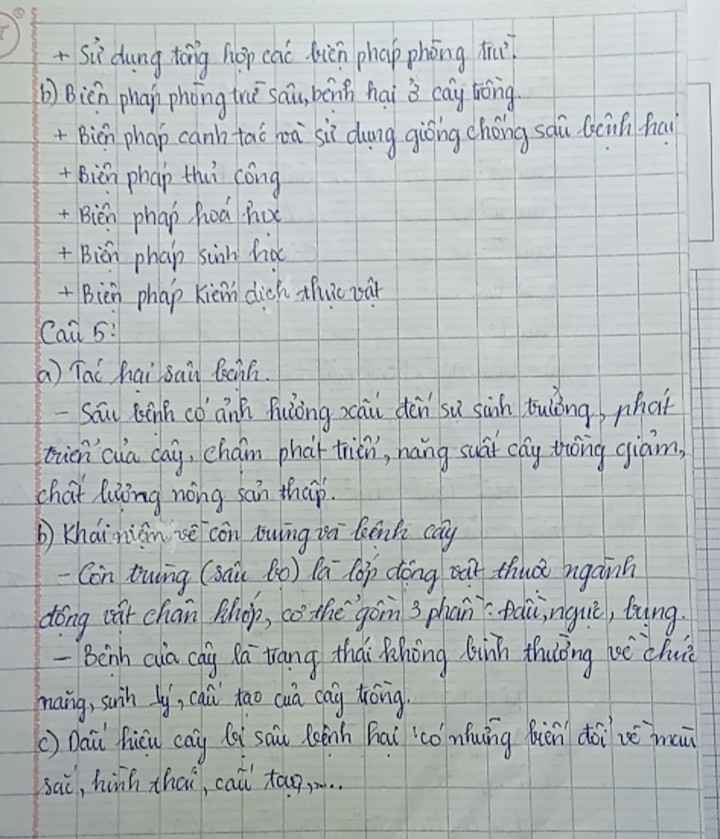 + Sử dụng tổng hợp các biện pháp phòng trừ.
b) Biện pháp phòng trừ sâu, bệnh hại ở cây trồng.
+ Biện pháp canh tác và sử dụng giống chống sâu bệnh hại
+ Biện pháp thủ công
+ Biện pháp hoá học
+ Biện pháp sinh học
+ Biện pháp kiểm dịch thực vật
Câu 5:
a) Tác hại sâu bệnh.
- Sâu bệnh có ảnh hưởng xấu đến sự sinh trưởng, phát
triển của cây, chậm phát triển, năng suất cây trồng giảm,
chất lượng nông sản thấp.
b) Khái niệm về côn trùng và bệnh cây
- Côn trùng (sâu bọ) là lớp động vật thuộc ngành
động vật chân khớp, cơ thể gồm 3 phần: đầu, ngực, bụng.
- Bệnh của cây là trạng thái không bình thường về chức
năng, sinh lý, cấu tạo của cây trồng.
c) Dấu hiệu cây bị sâu bệnh hại: có những biến đổi về màu
sắc, hình thái, cấu tạo,....